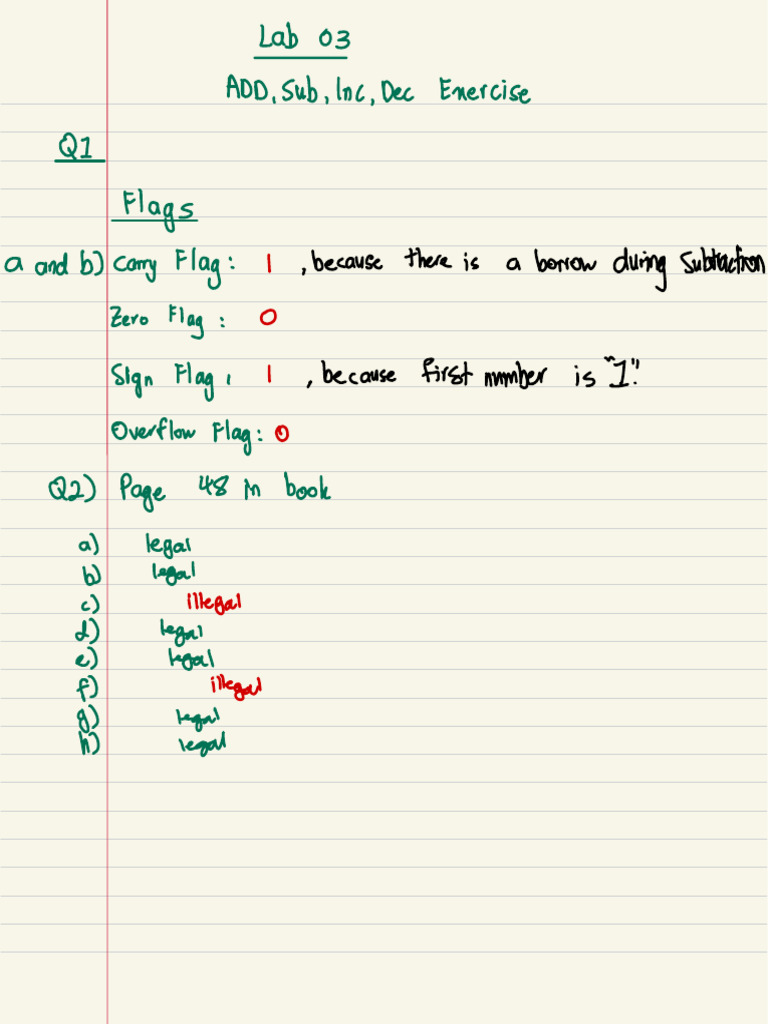 Lab 03
ADD, Sub, Inc, Dec Exercise
Q1
Flags
a and b) Carry Flag: 1 , because there is a borrow during Subtraction
Zero Flag : 0
Sign Flag : 1 , because first number is "1".
Overflow Flag: 0
Q2) Page 48 in book
a) legal
b) legal
c) illegal
d) legal
e) legal
f) illegal
g) legal
h) legal